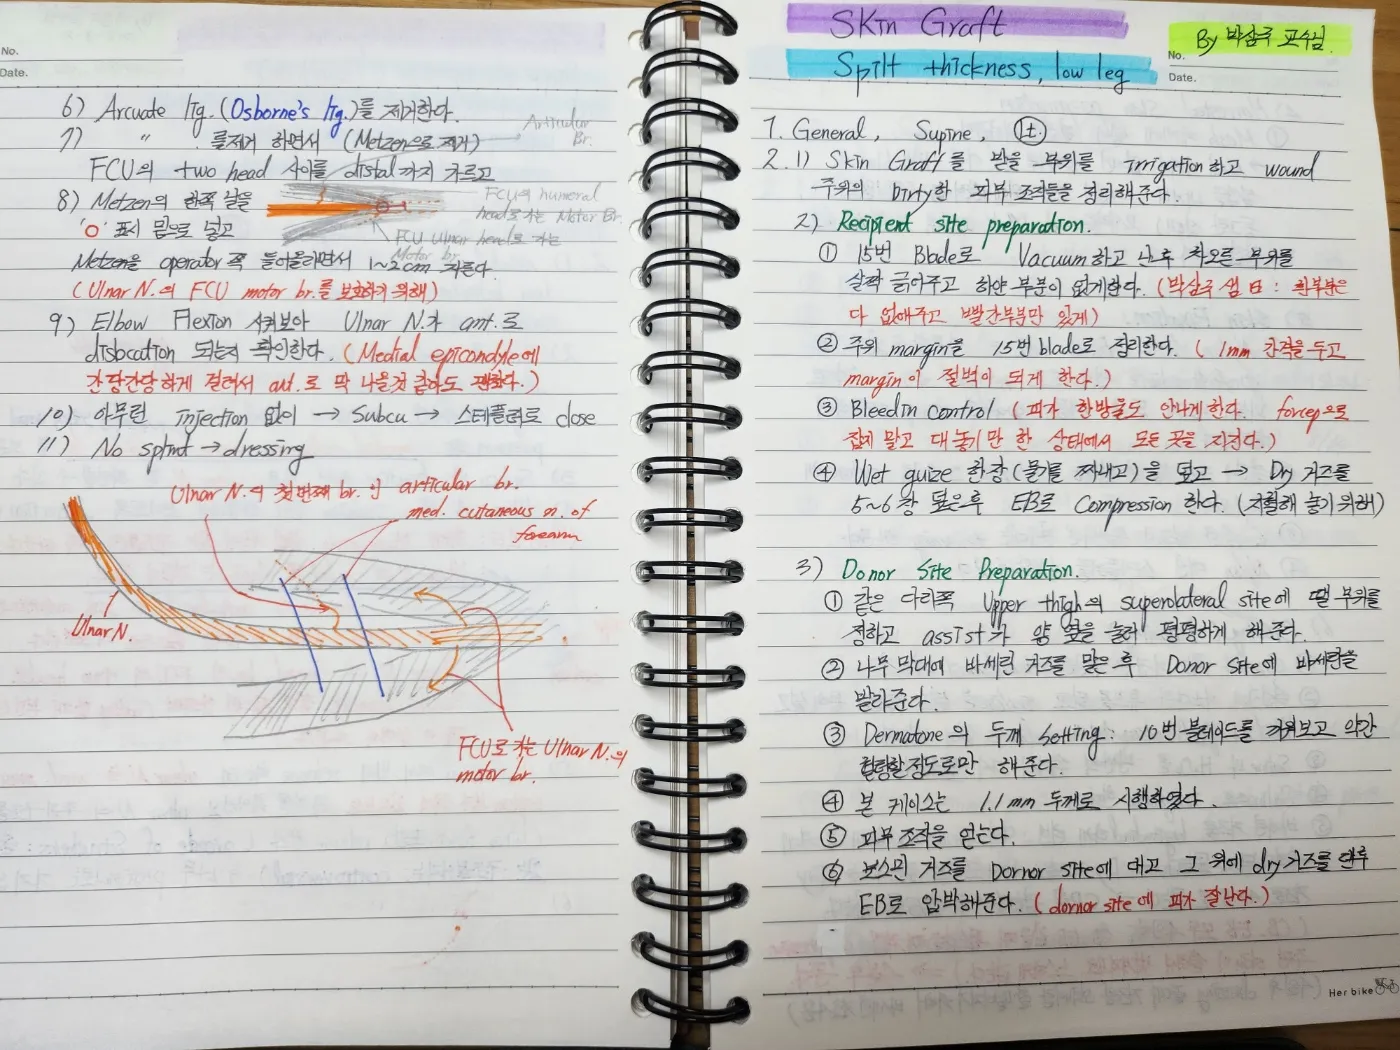 No.
Date.
6) Arcuate lig. (Osborne's lig.)를 제거한다.
7) " 를 제거 하면서 (Metzen으로 제거)
FCU의 two head 사이를 distal까지 가르고
Articular
Br.
8) Metzen의 한쪽 날을
'o' 표시 밑으로 넣고
Metzen을 operator쪽 들어올리면서 1~2cm 자른다.
(Ulnar N.의 FCU motor br.를 보호하기 위해)
FCU의 humeral
head로 가는 Motor Br.
FCU Ulnar head로 가는
Motor br.
9) Elbow Flexion 시켜보아 Ulnar N.가 ant.로
dislocation 되는지 확인한다. (Medial epicondyle에
간당간당하게 걸려서 ant.로 막 나올것 같아도 괜찮다.)
10) 아무런 injection 없이 → Subcu → 스테플러로 close
11) No splint → dressing
Ulnar N.의 첫번째 br.인 articular br.
med. cutaneous n. of
forearm
Ulnar N.
FCU로 가는 Ulnar N.의
motor br.
Skin Graft
Split thickness, low leg
By 박삼주 교수님
No.
Date.
1. General, Supine, Lt.
2. 1) Skin Graft를 받을 부위를 irrigation하고 wound
주위의 Dirty한 피부 조직들을 정리해준다.
2) Recipient site preparation.
① 15번 Blade로 Vacuum하고 난 후 차오른 부위를
살짝 긁어주고 하얀 부분이 없게한다. (박삼주 쌤 曰 : 흰부분은
다 없애주고 빨간부분만 있게)
② 주위 margin을 15번 blade로 정리한다. (1mm 간격을 두고
margin이 절벽이 되게 한다.)
③ Bleedin control (피가 한방울도 안나게한다. forcep으로
잡지 말고 대 놓기만 한 상태에서 모든 곳을 지진다.)
④ Wet guize 한장(물기를 짜내고)을 덮고 → Dry 거즈를
5~6장 덮은후 EB로 Compression 한다. (지혈해 놓기 위해)
3) Donor Site Preparation.
① 같은 다리쪽 Upper thigh의 superolateral site에 뗄 부위를
정하고 assist가 양 옆을 눌러 평평하게 해준다.
② 나무 막대에 바세린 거즈를 말은 후 Donor site에 바세린을
발라준다.
③ Dermatone의 두께 setting : 10번 블레이드를 끼워보고 약간
헐렁할정도로만 해준다.
④ 본 케이스는 1.1mm 두께로 시행하였다.
⑤ 피부 조직을 얻는다.
⑥ 보스민 거즈를 Dornor site에 대고 그 위에 dry거즈를 댄후
EB로 압박해준다. (dornor site에 피가 잘난다.)
Her bike